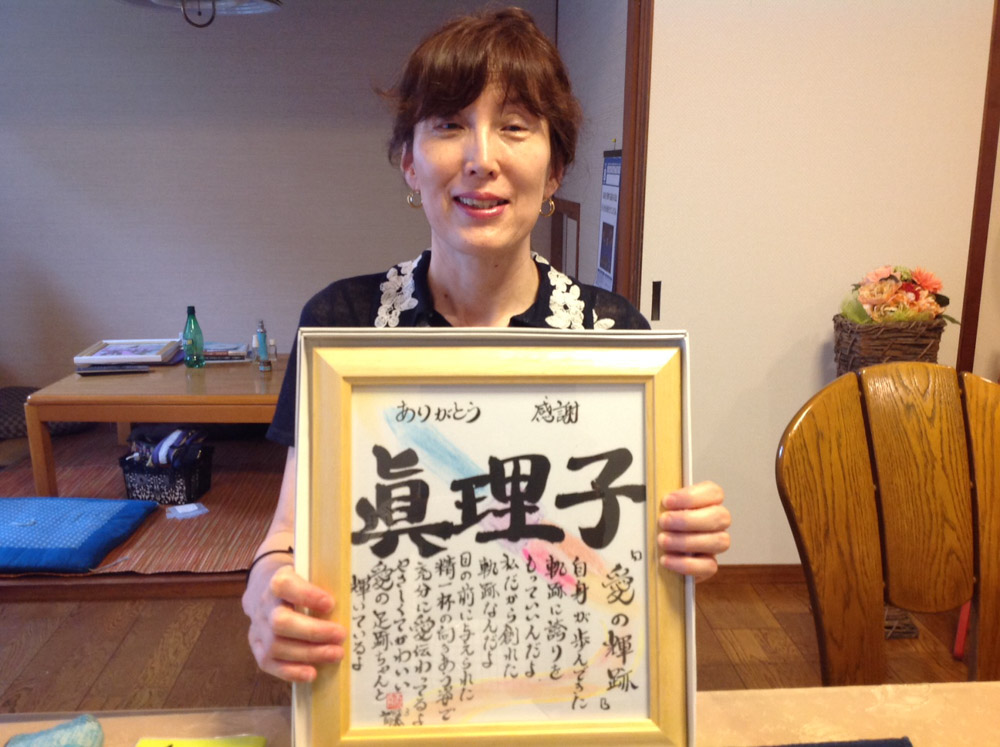 ありがとう 感謝
眞理子
『愛の輝跡』
自身が歩んできた
軌跡に誇りを
もっていいんだよ
私だから創れた
軌跡なんだよ
目の前に与えられた
精一杯の向きあう姿で
充分に愛伝わってるよ
やさしくてかわいい
愛の足跡ちゃんと
輝いているよ